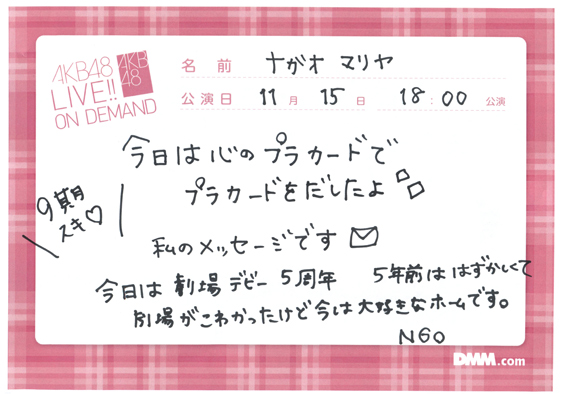 AKB48
LIVE!!
ON DEMAND
AKB
48
名前 ナガオ マリヤ
公演日 11月 15日 18:00 公演
今日は心のプラカードで
プラカードをだしたよ
9期
スキ♡
私のメッセージです
今日は 劇場デビー 5周年 5年前ははずかしくて
劇場がこわかったけど今は大好きなホームです。
NGO
DMM.com